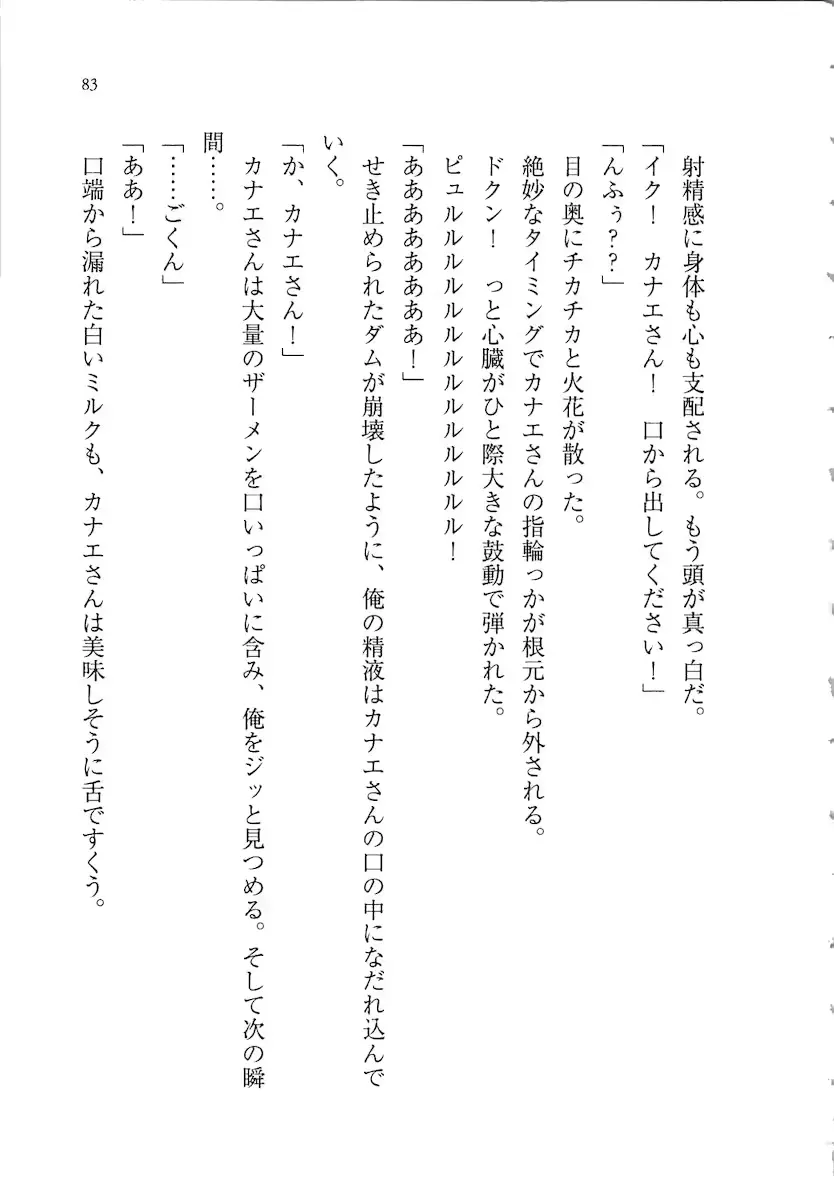 83
射精感に身体も心も支配される。もう頭が真っ白だ。
「イク！　カナエさん！　口から出してください！」
「んふぅ??」
目の奥にチカチカと火花が散った。
絶妙なタイミングでカナエさんの指輪っかが根元から外される。
ドクン！　っと心臓がひと際大きな鼓動で弾かれた。
ピュルルルルルルルルルルルルル！
「ああああああああ！」
せき止められたダムが崩壊したように、俺の精液はカナエさんの口の中になだれ込んで
いく。
「か、カナエさん！」
カナエさんは大量のザーメンを口いっぱいに含み、俺をジッと見つめる。そして次の瞬
間……。
「……ごくん」
「ああ！」
口端から漏れた白いミルクも、カナエさんは美味しそうに舌ですくう。